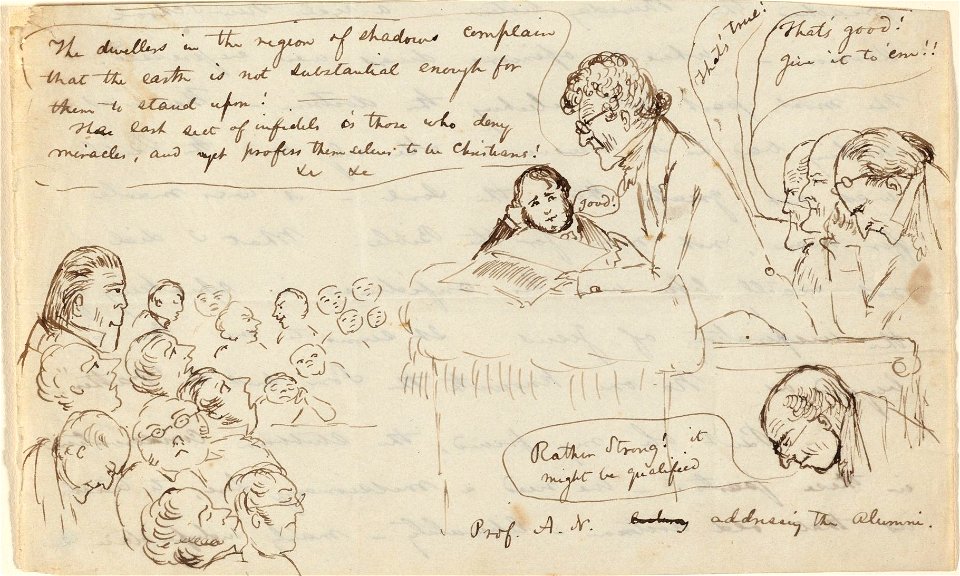 The dwellers in the region of shadows complain
that the earth is not substantial enough for
them to stand upon!
The last sect of infidels is those who deny
miracles, and yet profess themselves to be Christians!
&c &c
That's true!
That's good!
give it to em!!
good!
Rather Strong! it
might be qualified
Prof. A. N. addressing the Alumni.